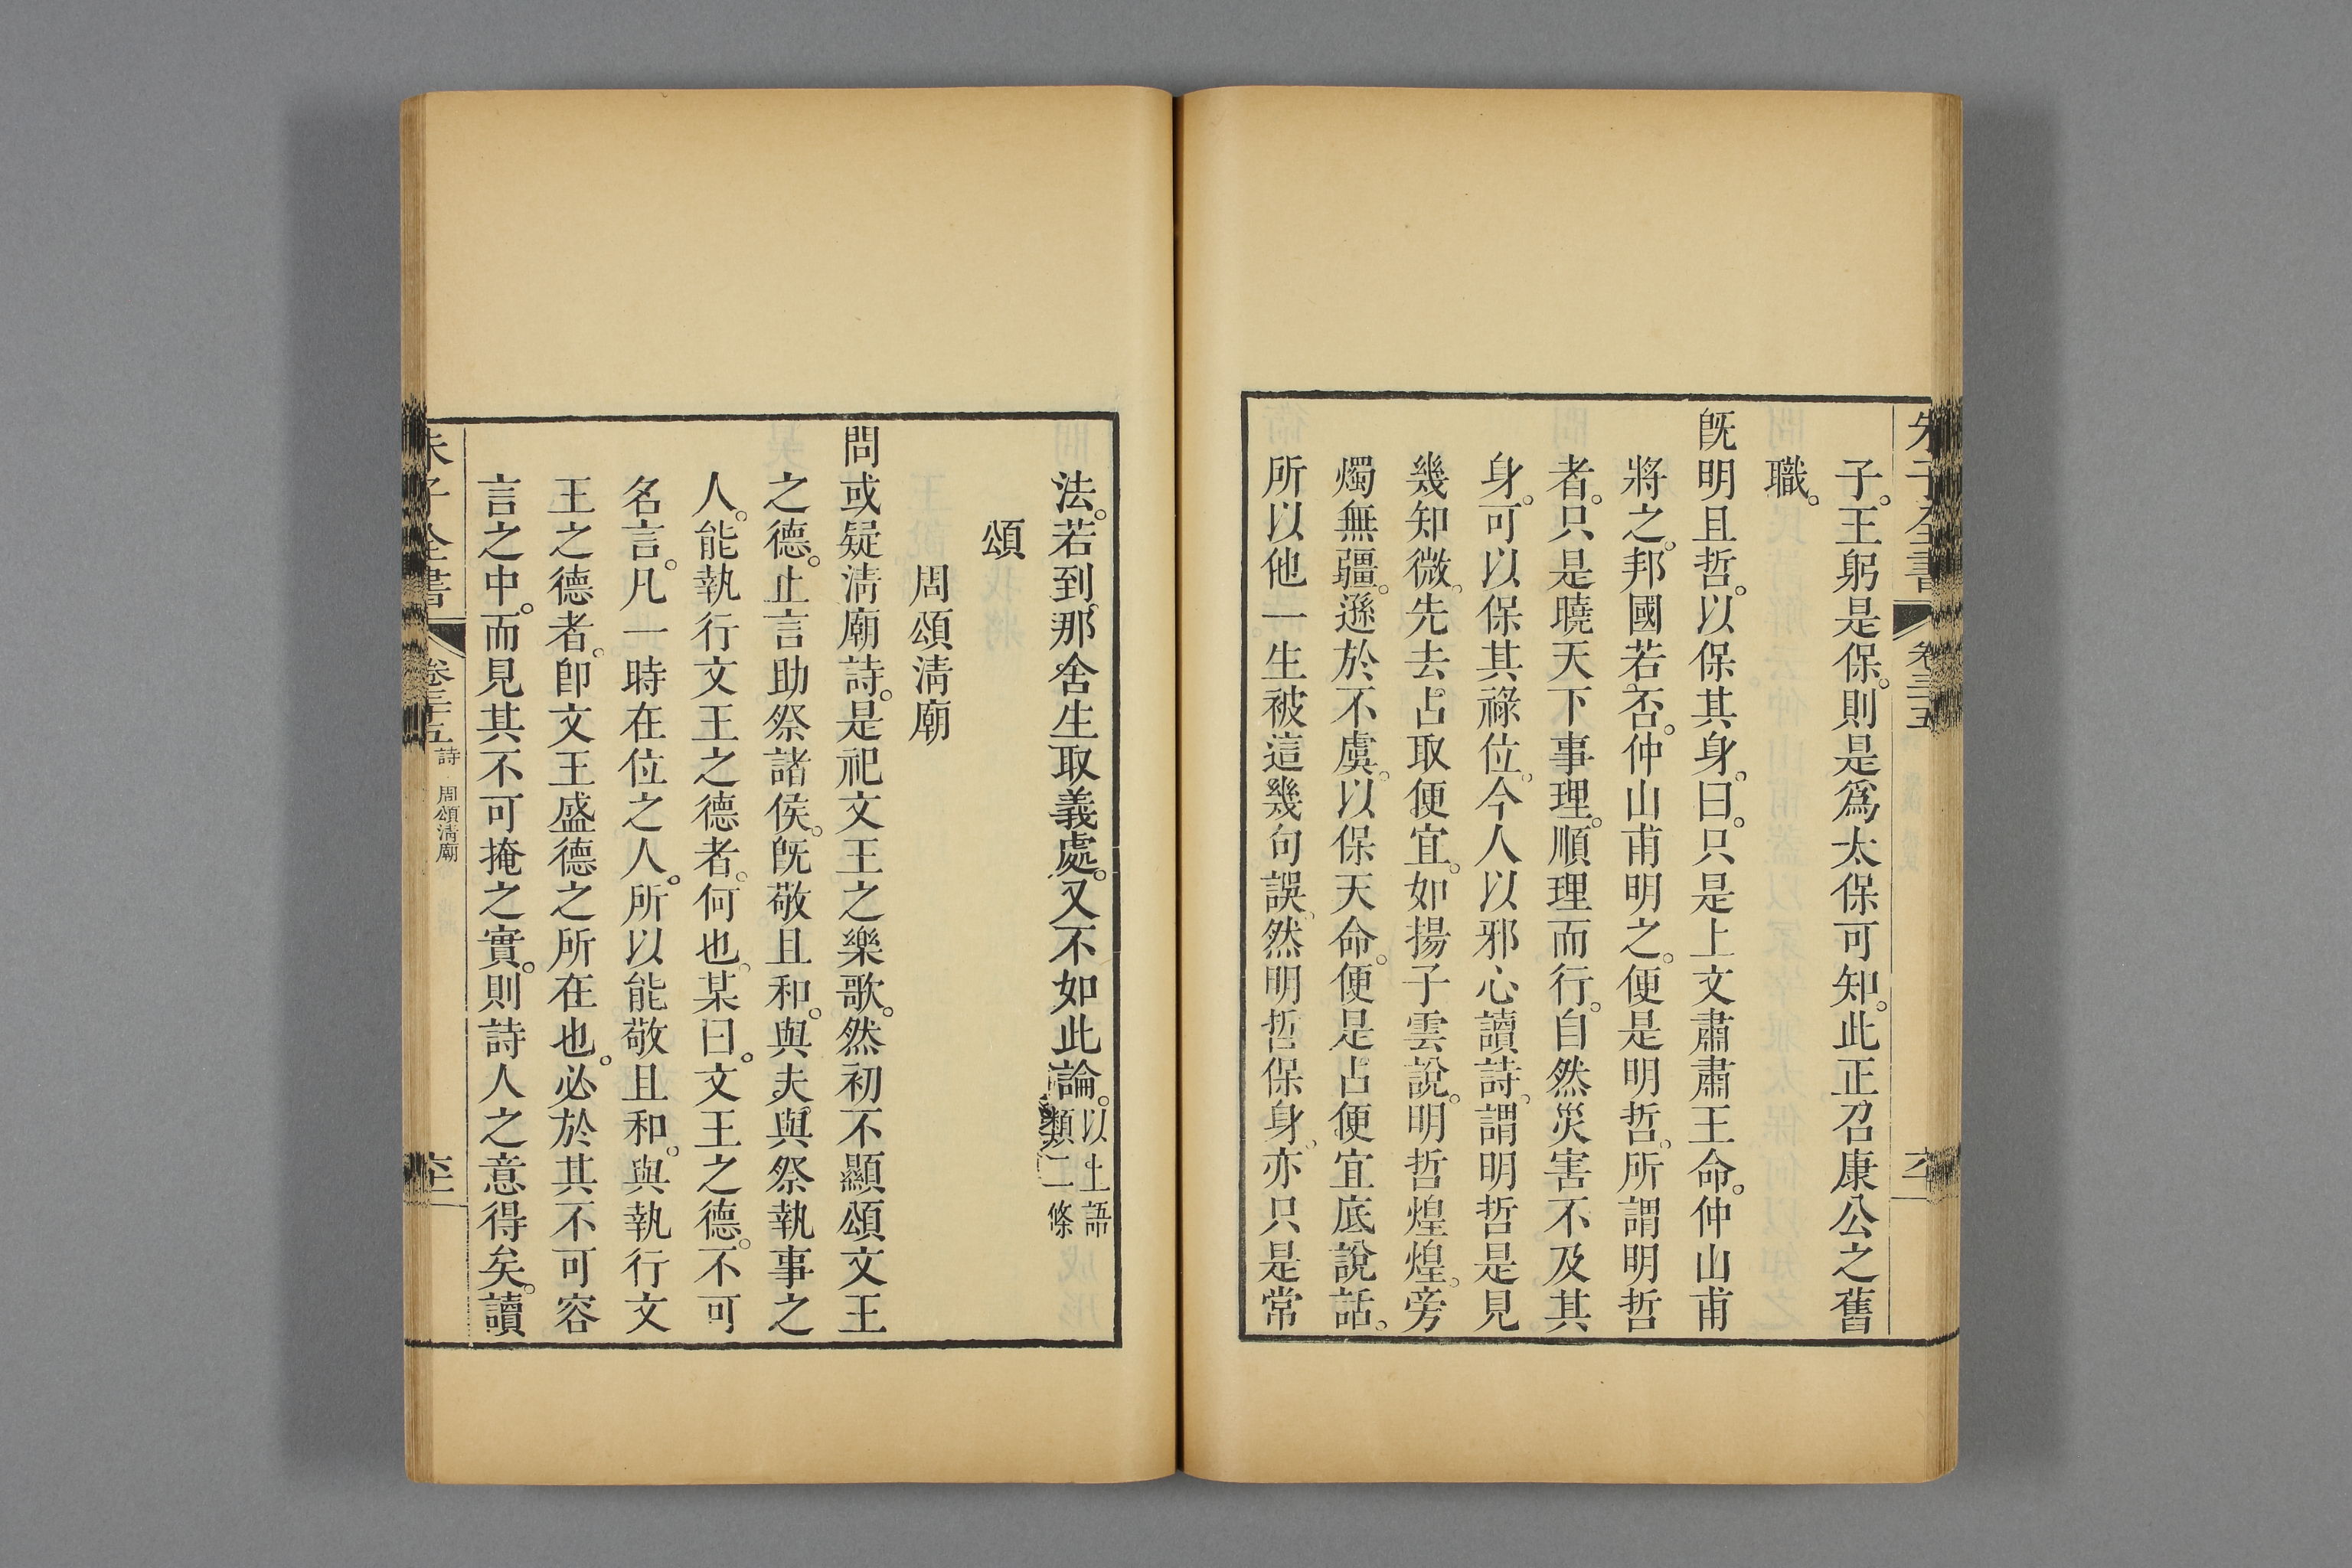 子。王躬是保。則是爲太保可知。此正召康公之舊
職。
旣明且哲。以保其身。曰。只是上文肅肅王命。仲山甫
將之。邦國若否。仲山甫明之。便是明哲。所謂明哲
者。只是曉天下事理。順理而行。自然災害不及其
身。可以保其祿位。今人以邪心讀詩。謂明哲是見
幾知微。先去占取便宜。如揚子雲說。明哲煌煌。旁
燭無疆。遜於不虞。以保天命。便是占便宜底說話。
所以他一生被這幾句誤。然明哲保身。亦只是常
法。若到那舍生取義處。又不如此論。以上語類二條
頌
周頌淸廟
問或疑淸廟詩。是祀文王之樂歌。然初不顯頌文王
之德。止言助祭諸侯。旣敬且和。與夫與祭執事之
人。能執行文王之德者。何也。某曰。文王之德。不可
名言。凡一時在位之人。所以能敬且和。與執行文
王之德者。卽文王盛德之所在也。必於其不可容
言之中。而見其不可掩之實。則詩人之意得矣。讀
朱子全書 卷三十五 詩 周頌淸廟